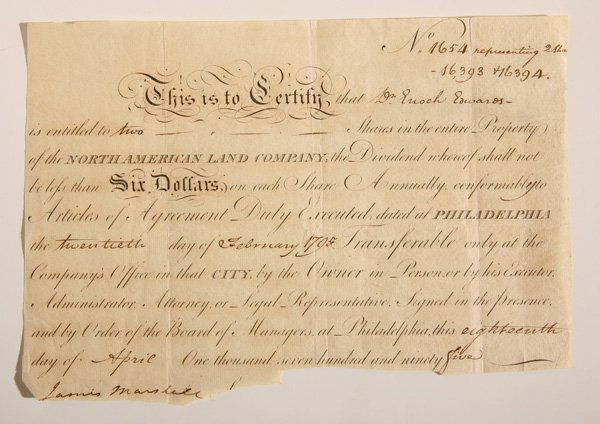 No. 1654 representing 2 Sha
- 16393 & 16394.
This is to Certify, that Dr. Enoch Edwards -
is entitled to two Shares in the entire Property
of the NORTH AMERICAN LAND COMPANY, the Dividend whereof shall not
be less than Six Dollars, on each Share Annually, conformably to
Articles of Agreement Duly Executed, dated at PHILADELPHIA
the twentieth day of February 1795. Transferable only at the
Company's Office in that CITY, by the Owner in Person, or by his Executor,
Administrator, Attorney, or Legal Representative. Signed in the presence,
and by Order of the Board of Managers, at Philadelphia, this eighteenth
day of April One thousand seven hundred and ninety five
James Marshall